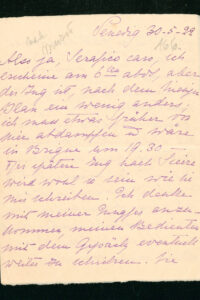 Venedig 30-5-22
Also ja, Serafico caro, ich
erscheine am 6ten abds, aber
der Zug ist nach dem hiesigen
Plan ein wenig anders;
ich muss etwas früher von
hier abdampfen u wäre
in Brigue um 19.30 —
Der spätere Zug nach Sierre
wird wohl so sein wie Sie
mir schreiben. Ich denke
mit meiner anzu-
kommen, meinen Bedienten
mit dem Gepäck eventuell
weiter zu schicken. Sie